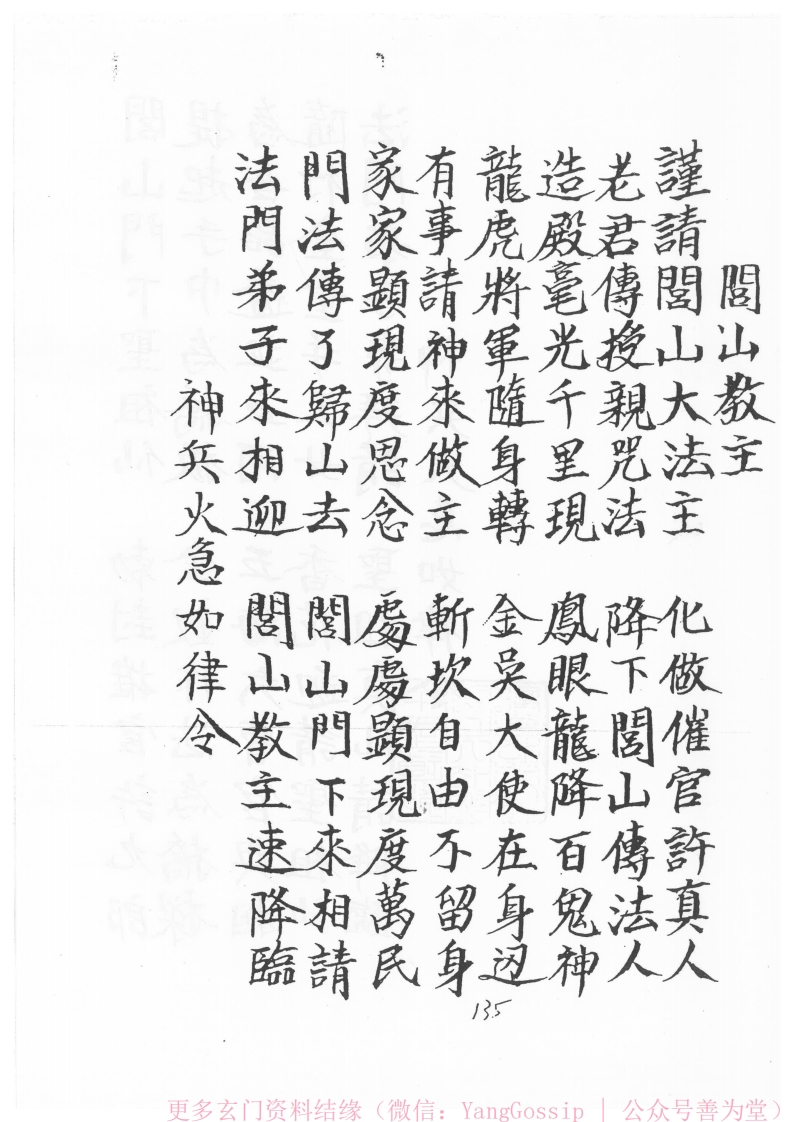 閭山教主
謹請閭山大法主 化做催官許真人
老君傳授親咒法 降下閭山傳法人
造殿毫光千里現 鳳眼龍降百鬼神
龍虎將軍隨身轉 金吳大使在身边
有事請神來做主 斬坎自由不留身
家家顯現度思念 處處顯現度萬民
門法傳了歸山去 閭山門下來相請
法門弟子來相迎 閭山教主速降臨
神兵火急如律令
135
更多玄门资料结缘（微信：YangGossip | 公众号善为堂）